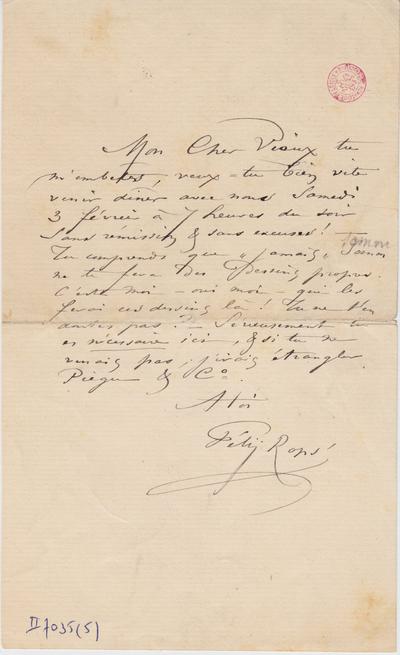 Mon Cher Vieux tu
m'embêtes, veux-tu bien vite
venir diner avec nous Samedi
3 février à 7 heures du soir
sans rémission & sans excuses!
Tu comprends que "jamais" 
ne te fera des Dessins propres.
C'est moi - oui moi - qui les
ferai ces dessins là! Tu ne t'en
doutes pas? - Serieusement tu
es nécessaire ici, & si tu ne
venais pas j'irais étrangler
Piégu & Co.
A toi
Félix Rops
II 7035(5)